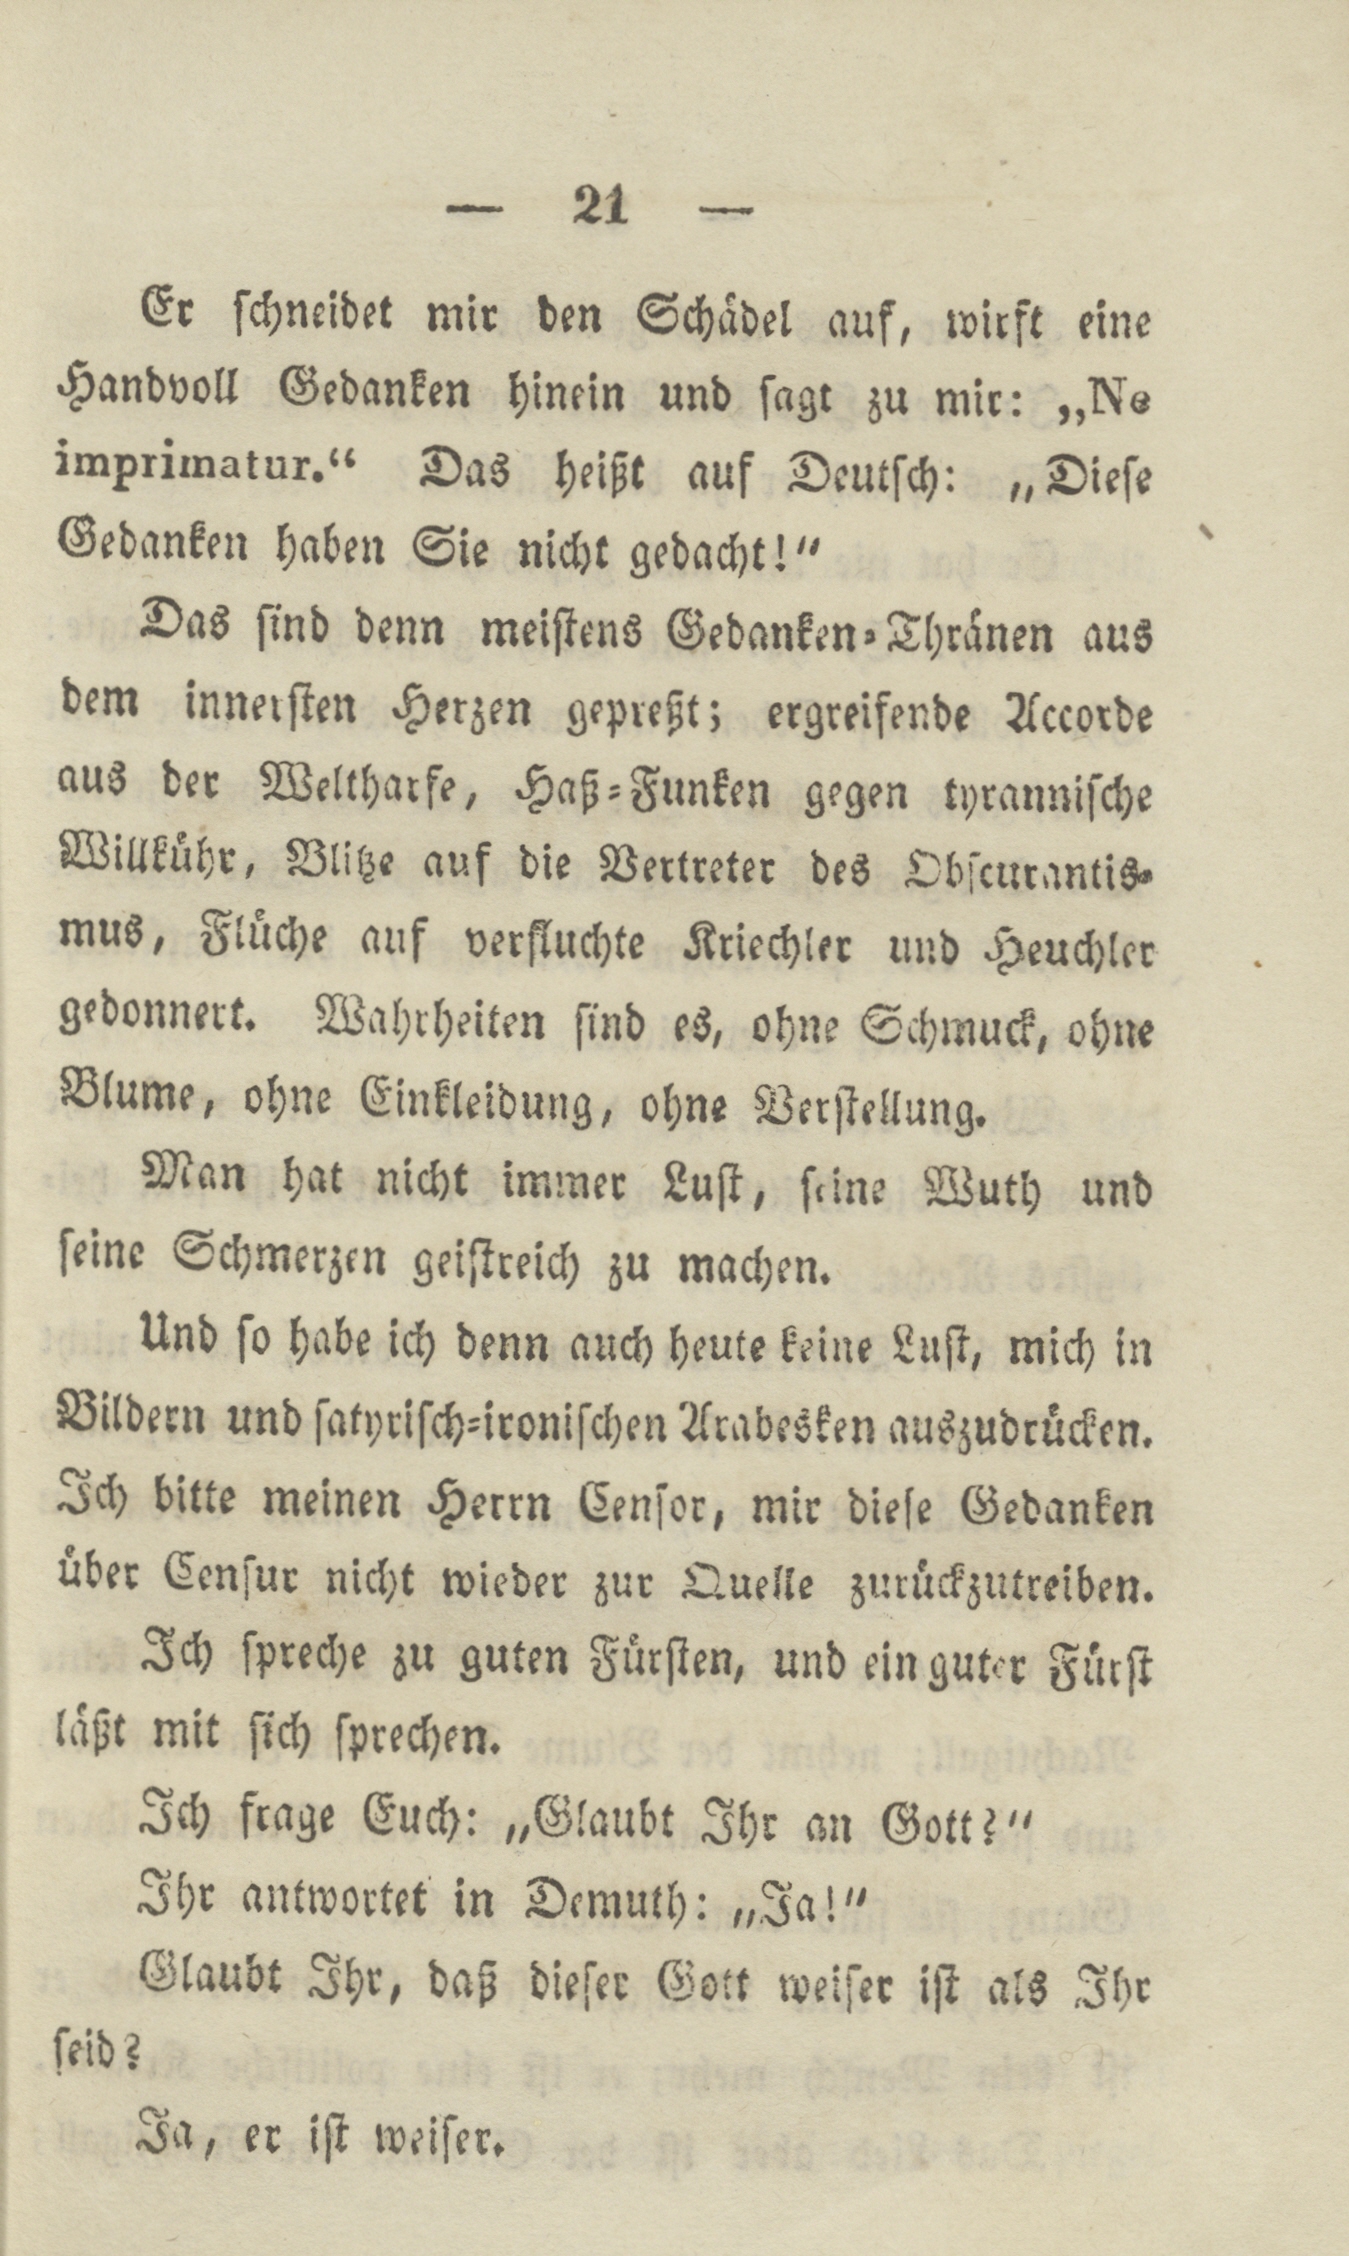 — 21 —
Er schneidet mir den Schädel auf, wirft eine
Handvoll Gedanken hinein und sagt zu mir: „Ne
imprimatur.“ Das heißt auf Deutsch: „Diese
Gedanken haben Sie nicht gedacht!“
Das sind denn meistens Gedanken-Thränen aus
dem innersten Herzen gepreßt; ergreifende Accorde
aus der Weltharfe, Haß-Funken gegen tyrannische
Willkühr, Blitze auf die Vertreter des Obscurantis-
mus, Flüche auf verfluchte Kriechler und Heuchler
gedonnert. Wahrheiten sind es, ohne Schmuck, ohne
Blume, ohne Einkleidung, ohne Verstellung.
Man hat nicht immer Lust, seine Wuth und
seine Schmerzen geistreich zu machen.
Und so habe ich denn auch heute keine Lust, mich in
Bildern und satyrisch-ironischen Arabesken auszudrücken.
Ich bitte meinen Herrn Censor, mir diese Gedanken
über Censur nicht wieder zur Quelle zurückzutreiben.
Ich spreche zu guten Fürsten, und ein guter Fürst
läßt mit sich sprechen.
Ich frage Euch: „Glaubt Ihr an Gott?“
Ihr antwortet in Demuth: „Ja!“
Glaubt Ihr, daß dieser Gott weiser ist als Ihr
seid?
Ja, er ist weiser.